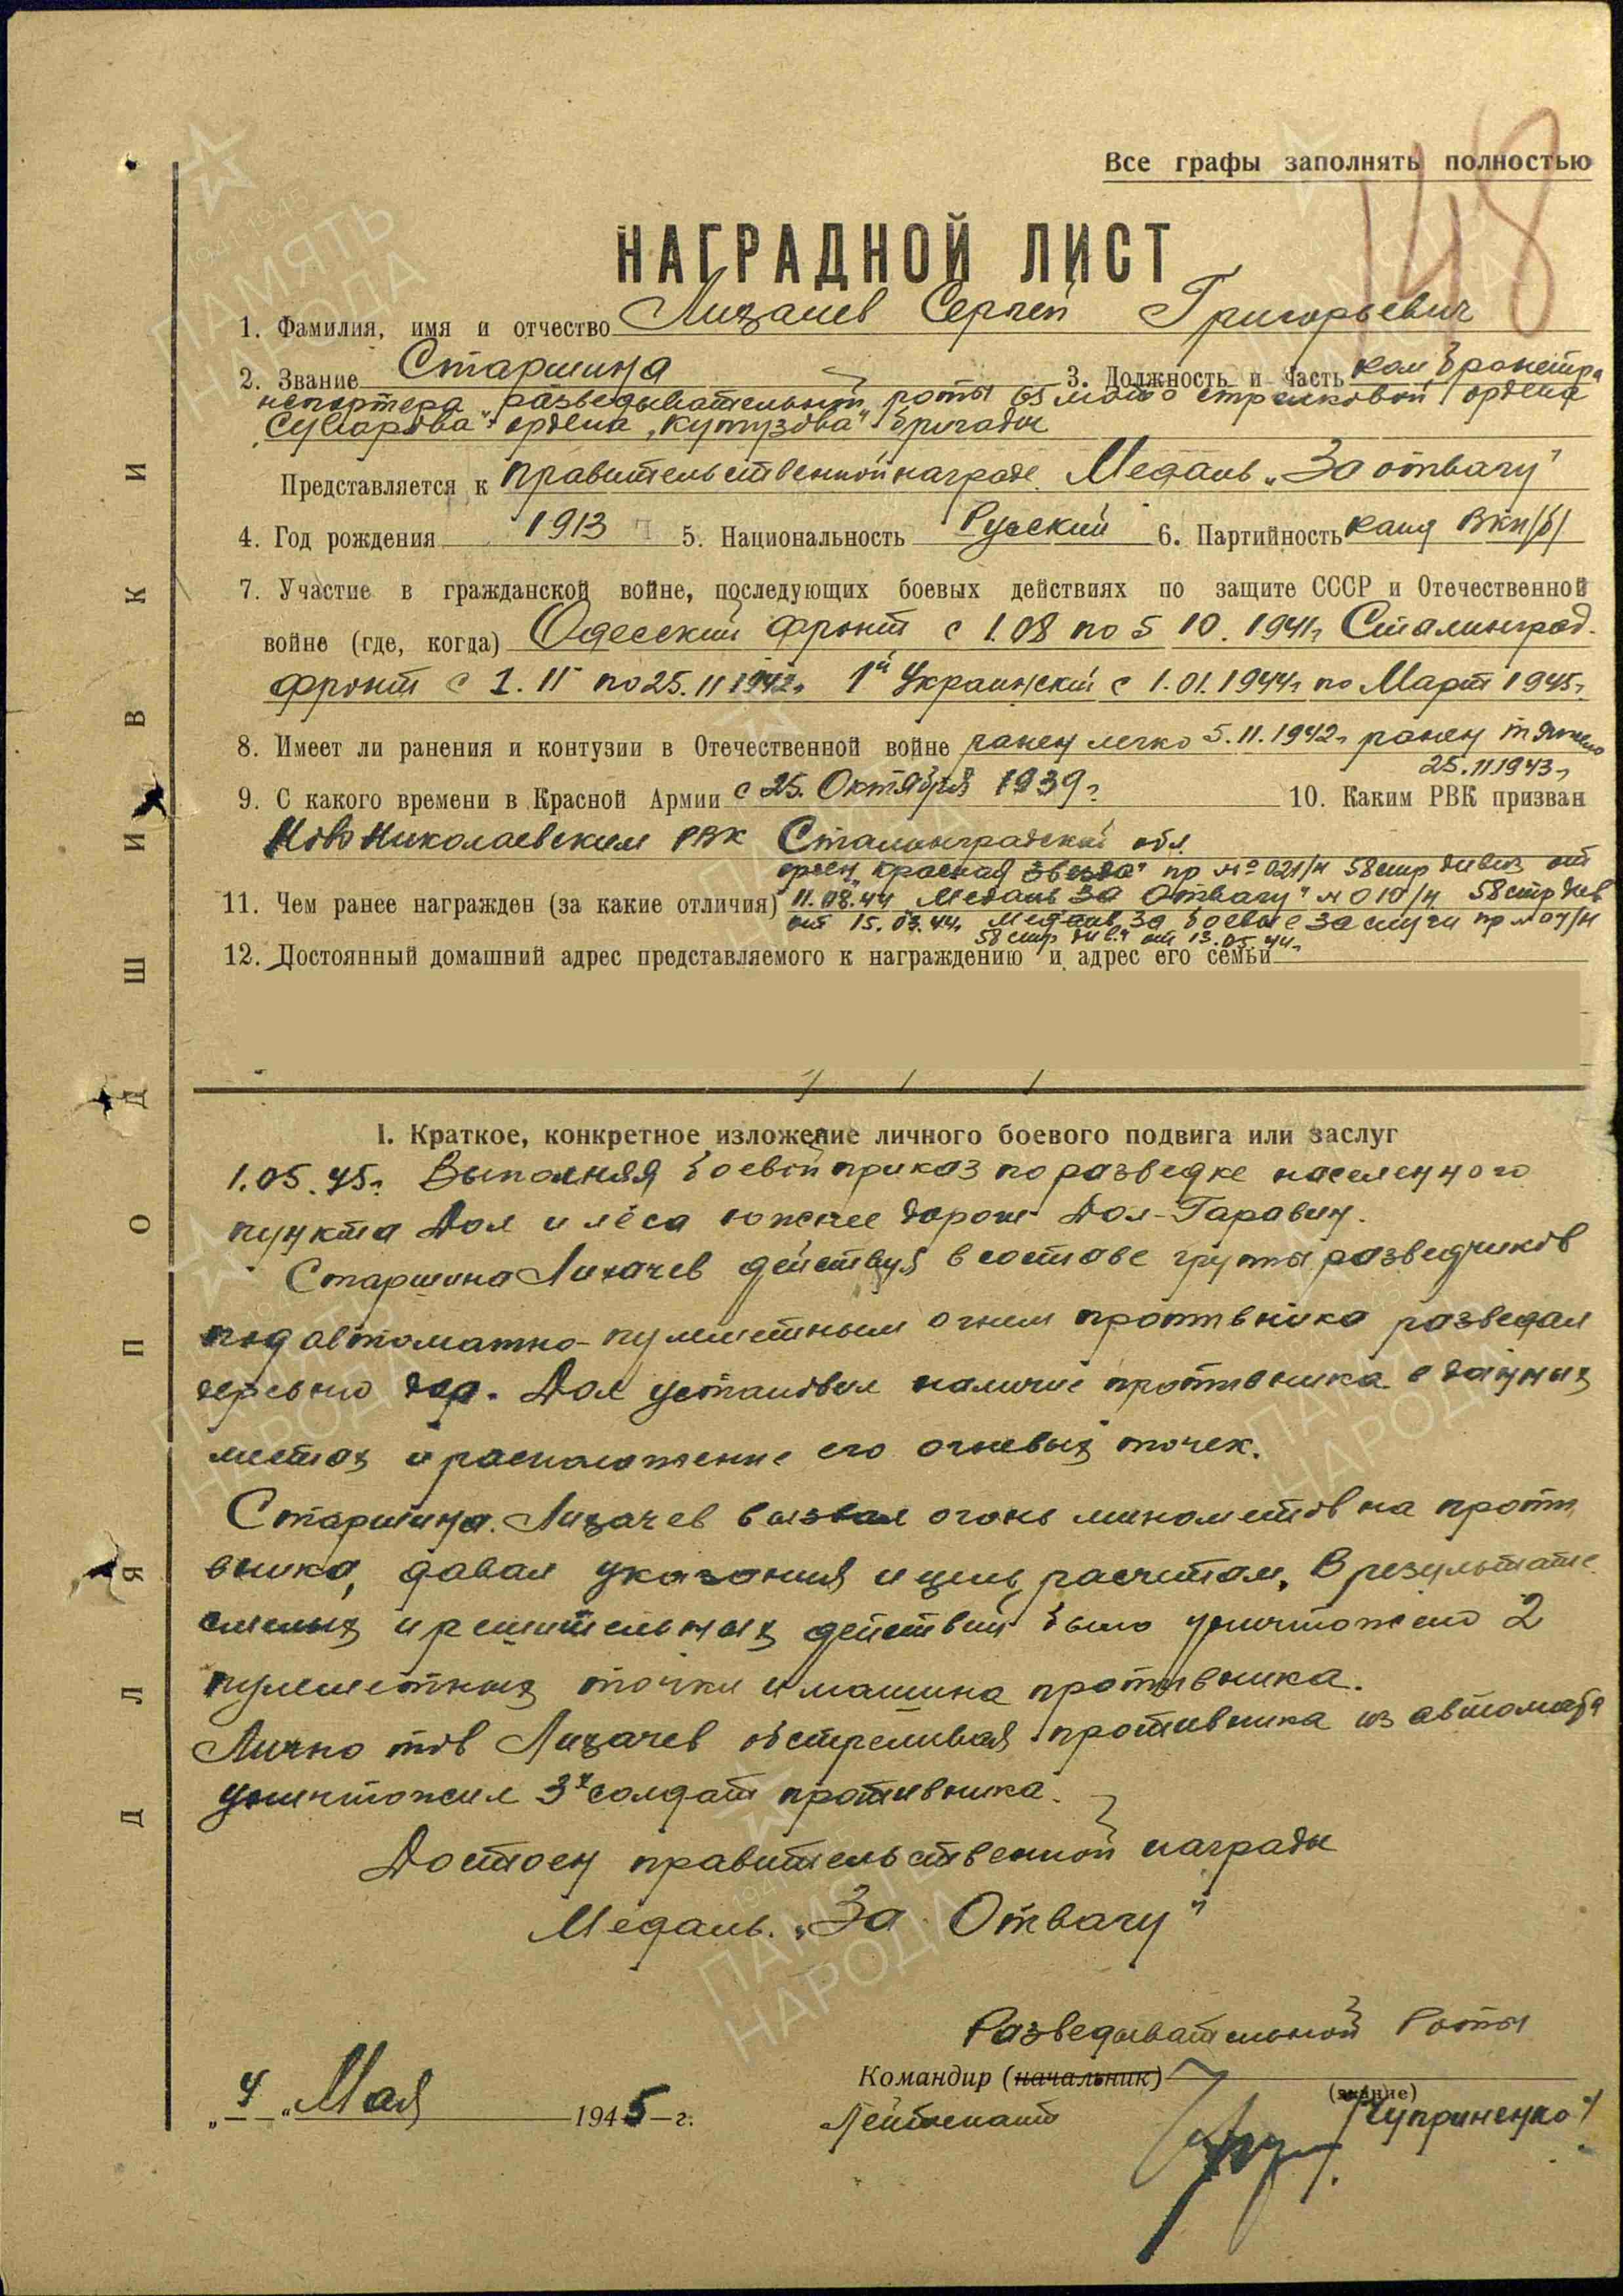 148
Все графы заполнять полностью
НАГРАДНОЙ ЛИСТ
1. Фамилия, имя и отчество Лихачев Сергей Григорьевич
2. Звание Старшина 3. Должность и часть ком бронетра
нспортера разведывательной роты 65 мото стрелковой ордена
"Суварова" ордена "Кутузова" бригады
Представляется к правительственной награде Медаль "За отвагу"
4. Год рождения 1913 5. Национальность Русский 6. Партийность канд ВКП/б/
7. Участие в гражданской войне, последующих боевых действиях по защите СССР и Отечественной
войне (где, когда) Одесский фронт с 1.08 по 5 10. 1941г Сталинград.
фронт с 1.11 по 25.11 1942г 1й Украинский с 1.01.1944г по Март 1945г.
8. Имеет ли ранения и контузии в Отечественной войне ранен легко 5.11.1942г ранен тяжело
25.11.1943г
9. С какого времени в Красной Армии с 25. Октября 1939г. 10. Каким РВК призван
Ново Николаевским РВК Сталинградской обл.
орден "Красная звезда" пр № 021/н 58 стр дивиз от
11. Чем ранее награжден (за какие отличия) 11.08.44 Медаль За Отвагу" № 010/н 58 стр див
от 15.03.44г Медаль За боевые заслуги пр № 07/н
58 стр див. от 13.05.44г
12. Постоянный домашний адрес представляемого к награждению и адрес его семьи
I. Краткое, конкретное изложение личного боевого подвига или заслуг
1.05.45г. Выполняя боевой приказ по разведке населенного
пункта Дол и леса южнее дороги Дол-Гаравин.
Старшина Лихачев действуя в составе групы разведчиков
под автоматно-пулеметным огнем противника разведал
деревню дер. Дол установил наличие противника в данных
местах и расположение его огневых точек.
Старшина. Лихачев вызвал огонь минометов на проти
вника, давал указания и цель расчетам. В результате
смелых и решительных действий было уничтожено 2
пулеметных точки и машина противника.
Лично тов Лихачев обстреливая противника из автомата
уничтожил 3х солдат противника.
Достоен правительственной награды
Медаль. "За Отвагу"
Разведывательной Роты
Командир (начальник)
(звание)
"4" Мая 1945 г.
Лейтенант /Чуприненко/
ДЛЯ ПОДШИВКИ
1941-1945
ПАМЯТЬ
НАРОДА